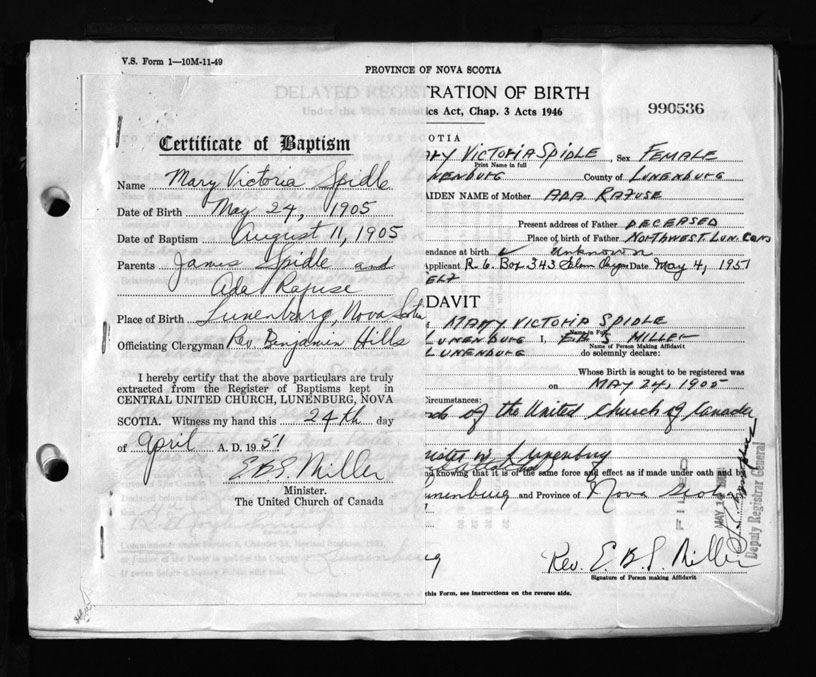 V.S. Form 1—10M-11-49
PROVINCE OF NOVA SCOTIA
Certificate of Baptism
Name Mary Victoria Spidle
Date of Birth May 24, 1905
Date of Baptism August 11, 1905
Parents James Spidle and
Ada Rafuse
Place of Birth Lunenburg, Nova Scotia
Officiating Clergyman Rev Benjamin Hills
I hereby certify that the above particulars are truly
extracted from the Register of Baptisms kept in
CENTRAL UNITED CHURCH, LUNENBURG, NOVA
SCOTIA. Witness my hand this 24th day
of April A. D. 1951
E B S Miller
Minister.
The United Church of Canada
TRATION OF BIRTH
ics Act, Chap. 3 Acts 1946
990536
COTIA
ARY VICTORIA SPIDLE, Sex FEMALE
Print Name in full
NENBURG County of LUNENBURG
AIDEN NAME of Mother ADA RAFUSE
Present address of Father DECEASED
Place of birth of Father NORTHWEST LUN.
endance at birth Unknown
Applicant R. 6. Box 343 Salem Date May 4, 1951
DAVIT
MARY VICTORIA SPIDLE
Name in Full
LUNENBURG I, E.B.S MILLER
Name of Person Making Affidavit
LUNENBURG do solemnly declare:
Whose Birth is sought to be registered was
on MAY 24, 1905
Circumstances:
ds of the United Church of Canada
nister in Lunenburg
knowing that it is of the same force and effect as if made under oath and by
unenburg and Province of Nova Scotia
FILED
MAY
Deputy Registrar General
Rev. E. B. S. Miller
Signature of Person making Affidavit
this Form, see instructions on the reverse side.